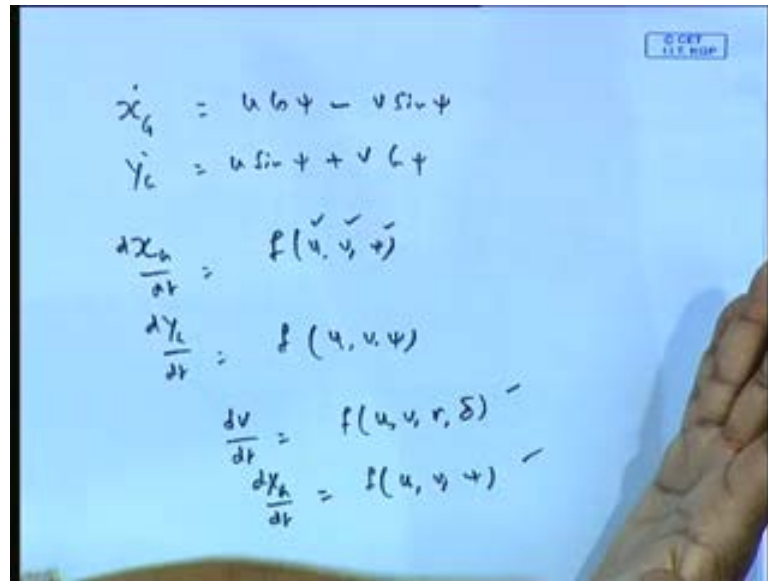 © CET
I.I.T. KGP
ẋ_G = u cos ψ − v sin ψ
ẏ_G = u sin ψ + v cos ψ
dx_G/dt = f(u, v, ψ)
dy_G/dt = f(u, v, ψ)
dv/dt = f(u, v, r, δ)
dx_G/dt = f(u, v, ψ)